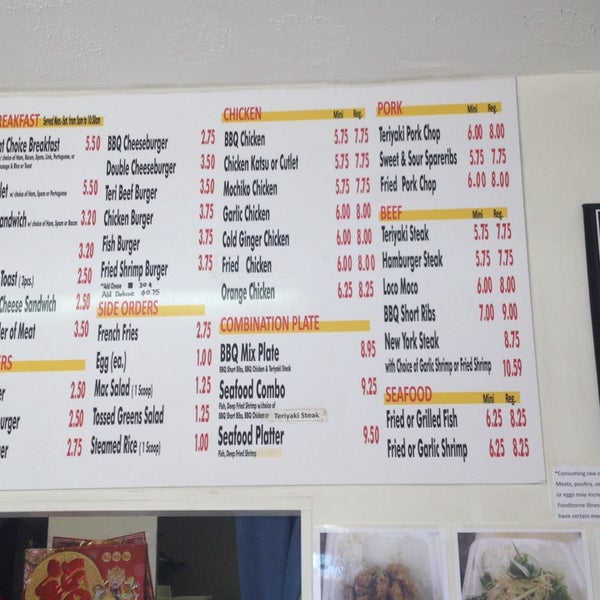 BREAKFAST Served Mon.-Sat. from 5am to 10:30am
Choice Breakfast 5.50
w/ choice of Ham, Bacon, Spam, Link, Portuguese, or
Sausage & Rice or Toast
w/ choice of Ham, Spam or Portuguese 5.50
w/ choice of Ham, Spam or Bacon 3.20
3.20
Toast (3pcs.) 2.50
Cheese Sandwich 2.50
of Meat 3.50
2.50
2.50
2.75
BBQ Cheeseburger 2.75
Double Cheeseburger 3.50
Teri Beef Burger 3.50
Chicken Burger 3.75
Fish Burger 3.75
Fried Shrimp Burger 3.75
*Add Cheese 30¢
Add Deluxe $0.75
SIDE ORDERS
French Fries 2.75
Egg (ea.) 1.00
Mac Salad (1 Scoop) 1.25
Tossed Greens Salad 1.25
Steamed Rice (1 Scoop) 1.00
CHICKEN Mini Reg.
BBQ Chicken 5.75 7.75
Chicken Katsu or Cutlet 5.75 7.75
Mochiko Chicken 5.75 7.75
Garlic Chicken 6.00 8.00
Cold Ginger Chicken 6.00 8.00
Fried Chicken 6.00 8.00
Orange Chicken 6.25 8.25
COMBINATION PLATE
BBQ Mix Plate 8.95
BBQ Short Ribs, BBQ Chicken & Teriyaki Steak
Seafood Combo 9.25
Fish, Deep Fried Shrimp w/choice of
BBQ Short Ribs, BBQ Chicken or Teriyaki Steak
Seafood Platter 9.50
Fish, Deep Fried Shrimp
PORK Mini Reg.
Teriyaki Pork Chop 6.00 8.00
Sweet & Sour Spareribs 5.75 7.75
Fried Pork Chop 6.00 8.00
BEEF Mini Reg.
Teriyaki Steak 5.75 7.75
Hamburger Steak 5.75 7.75
Loco Moco 6.00 8.00
BBQ Short Ribs 7.00 9.00
New York Steak 8.75
with Choice of Garlic Shrimp or Fried Shrimp 10.59
SEAFOOD Mini Reg.
Fried or Grilled Fish 6.25 8.25
Fried or Garlic Shrimp 6.25 8.25
*Consuming raw
Meats, poultry,
or eggs may
Foodborne Illness
have certain